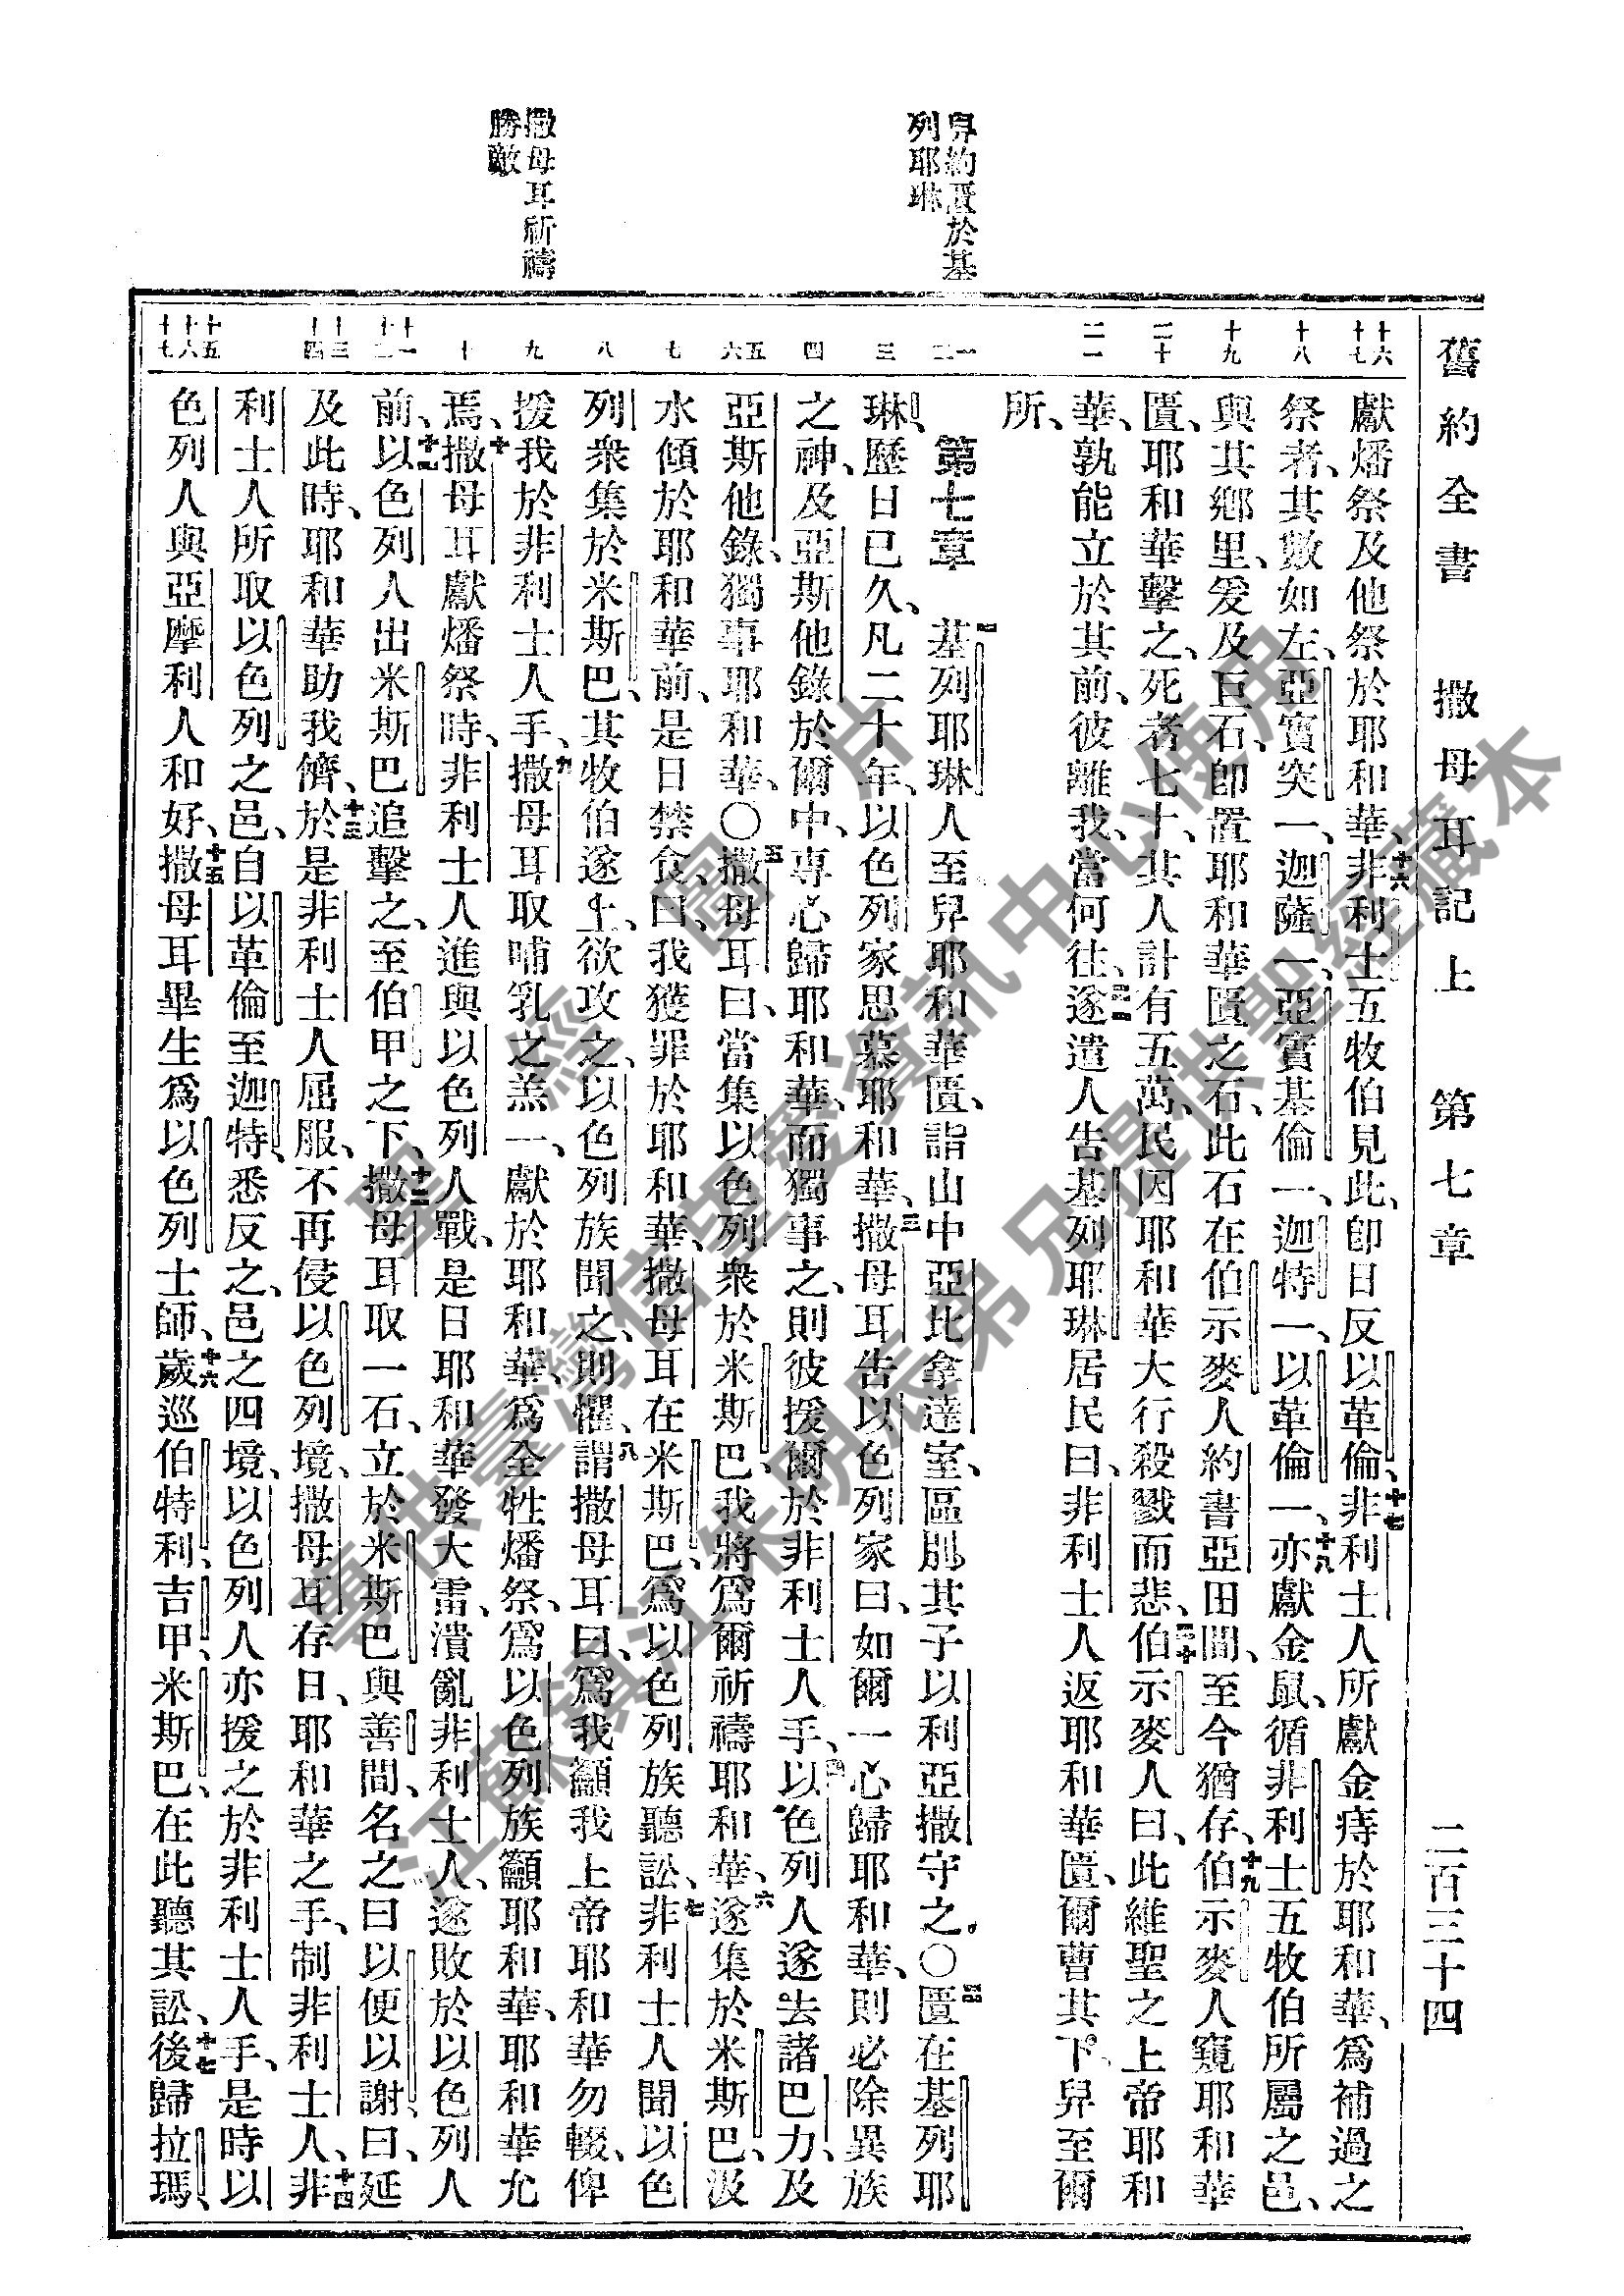 舊約全書 撒母耳記上 第七章 二百三十四
舁約匱於基
列耶琳
撒母耳祈禱
勝敵
十六
十七
十八
十九
二十
二一
一
二
三
四
五
六
七
八
九
十
十一
十二
十三
十四
十五
十六
十七
獻燔祭及他祭於耶和華、十六非利士五牧伯見此、卽日反以革倫、十七非利士人所獻金痔於耶和華、爲補過之
祭者、其數如左、亞實突一、迦薩一、亞實基倫一、迦特一、以革倫一、十八亦獻金鼠、循非利士五牧伯所屬之邑、
與其鄉里、爰及巨石、卽置耶和華匱之石、此石在伯示麥人約書亞田間、至今猶存、十九伯示麥人窺耶和華
匱、耶和華擊之、死者七十、其人計有五萬、民因耶和華大行殺戮而悲、二十伯示麥人曰、此維聖之上帝耶和
華、孰能立於其前、彼離我、當何往、二一遂遣人告基列耶琳居民曰、非利士人返耶和華匱、爾曹其下、舁至爾
所、
第七章 一基列耶琳人至舁耶和華匱、詣山中亞比拿達室、區別其子以利亞撒守之。〇二匱在基列耶
琳、歷日已久、凡二十年、以色列家思慕耶和華、三撒母耳告以色列家曰、如爾一心歸耶和華、則必除異族
之神、及亞斯他錄於爾中、專心歸耶和華、而獨事之、則彼援爾於非利士人手、四以色列人遂去諸巴力、及
亞斯他錄、獨事耶和華、〇五撒母耳曰、當集以色列衆於米斯巴、我將爲爾祈禱耶和華、六遂集於米斯巴、汲
水傾於耶和華前、是日禁食、曰、我獲罪於耶和華、撒母耳在米斯巴、爲以色列族聽訟、七非利士人聞以色
列衆集於米斯巴、其牧伯遂上、欲攻之、以色列族聞之、則懼、八謂撒母耳曰、爲我籲我上帝耶和華勿輟、俾
援我於非利士人手、九撒母耳取哺乳之羔一、獻於耶和華、爲全牲燔祭、爲以色列族籲耶和華、耶和華允
焉、十撒母耳獻燔祭時、非利士人進與以色列人戰、是日耶和華發大雷、潰亂非利士人、遂敗於以色列人
前、十一以色列人出米斯巴追擊之、至伯甲之下、十二撒母耳取一石、立於米斯巴與善間、名之曰以便以謝、曰、延
及此時、耶和華助我儕、十三於是非利士人屈服、不再侵以色列境、撒母耳存日、耶和華之手、制非利士人、十四非
利士人所取以色列之邑、自以革倫至迦特、悉反之、邑之四境、以色列人亦援之於非利士人手、是時以
色列人與亞摩利人和好、十五撒母耳畢生爲以色列士師、十六歲巡伯特利、吉甲、米斯巴、在此聽其訟、十七後歸拉瑪、
聖經圖片
專供臺灣信望愛資訊中心使用
江蘇鎮江朱明辰弟兄提供聖經藏本